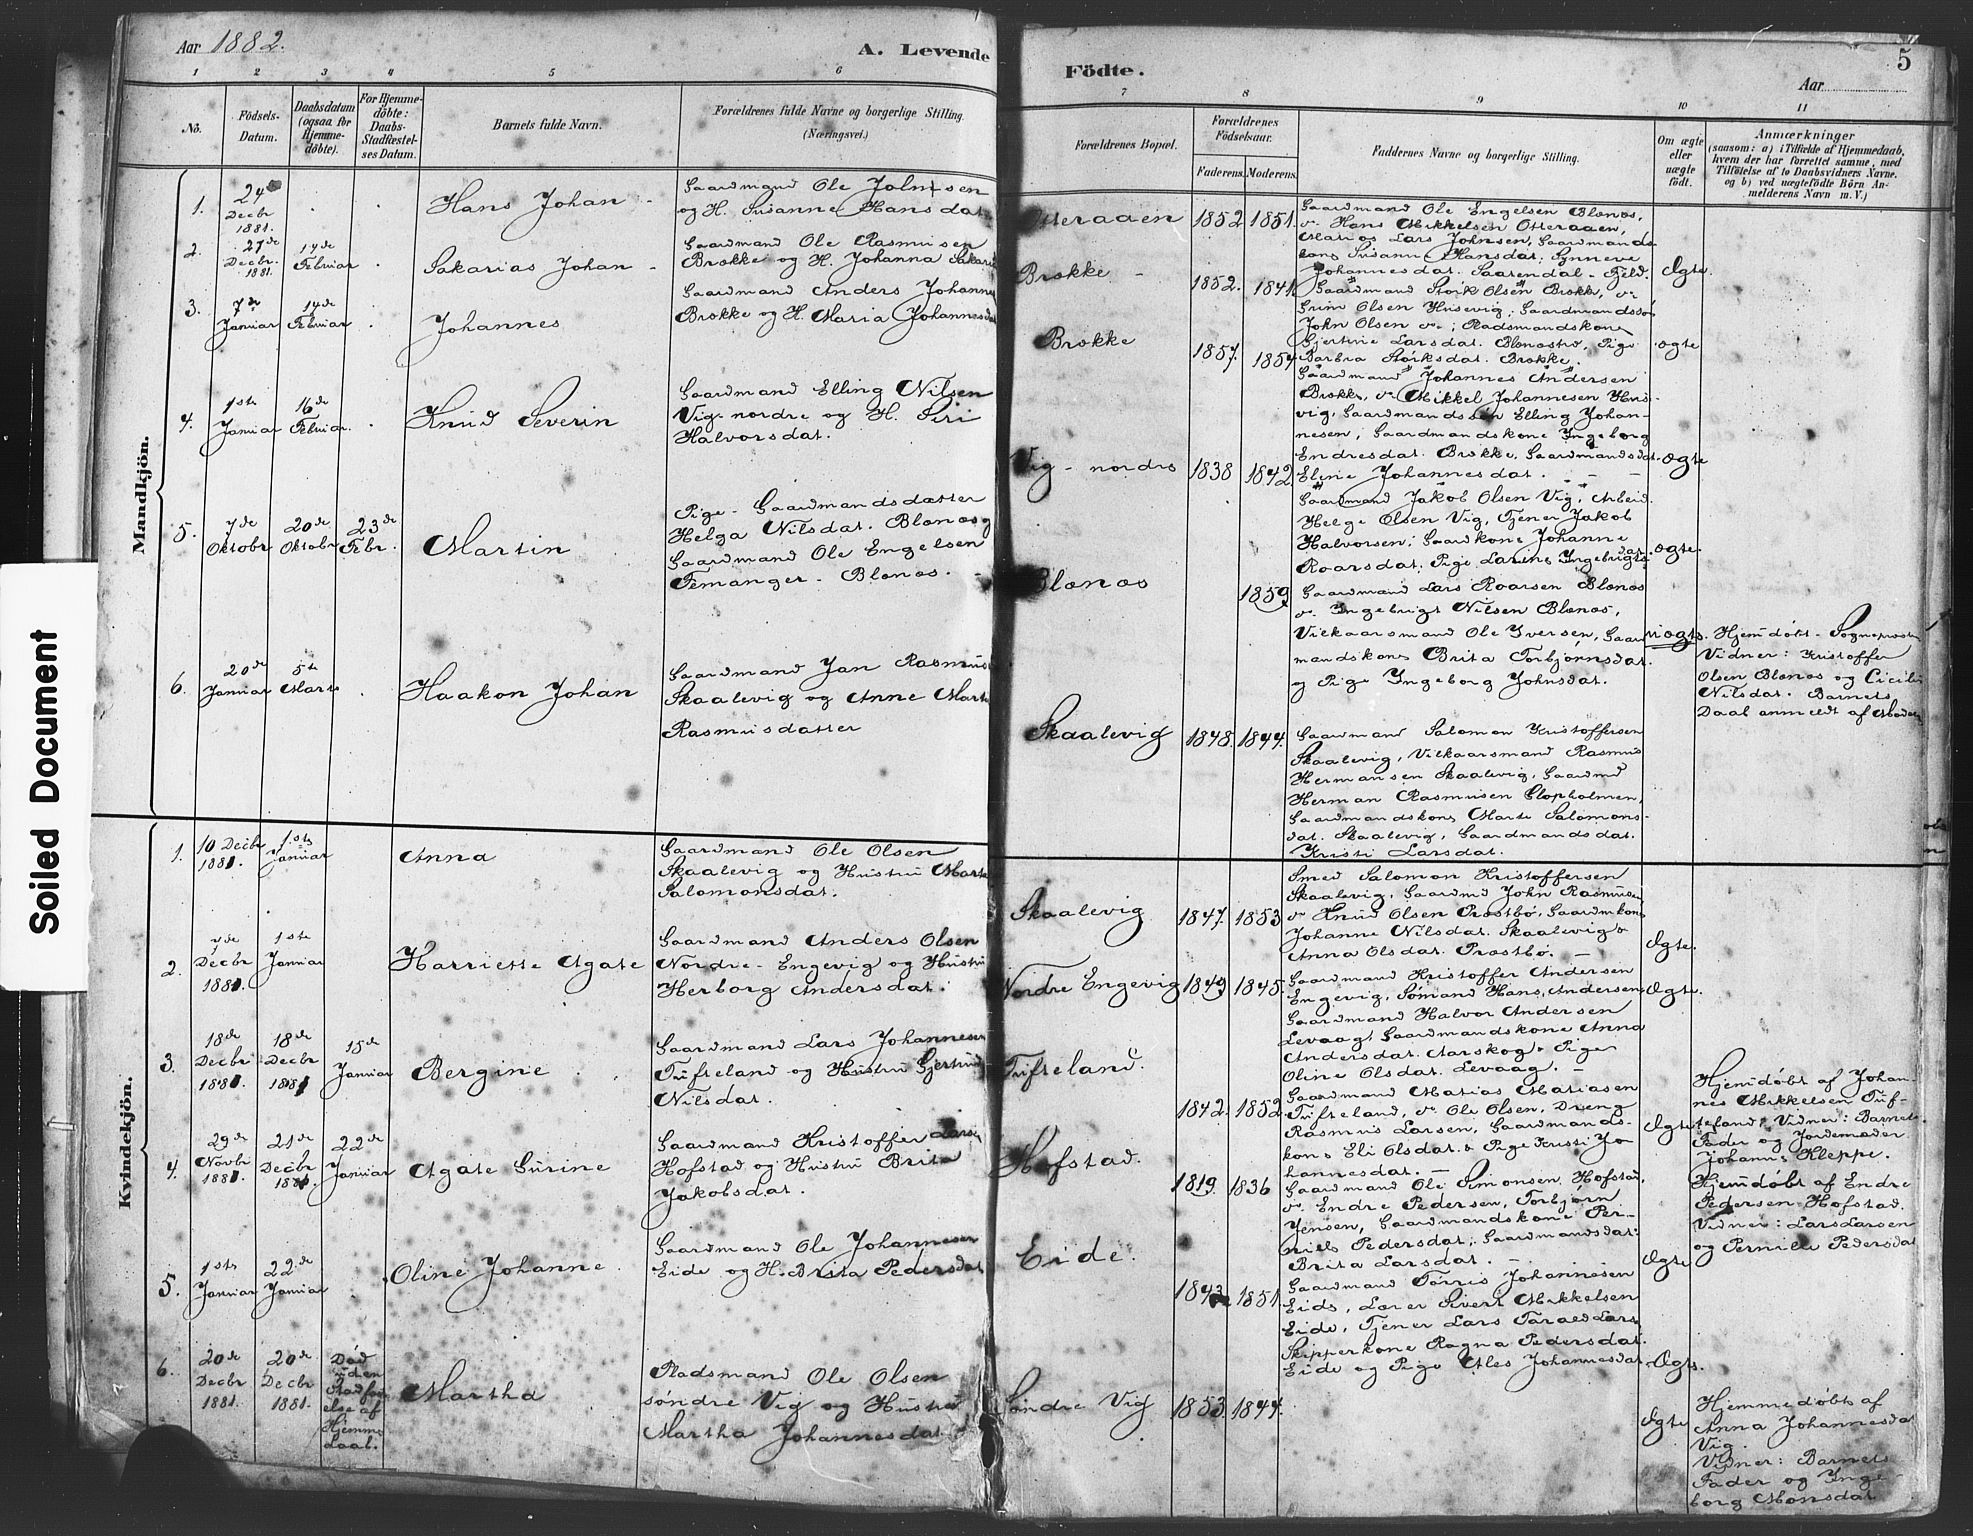 Aar 1882.
A. Levende
1 2 3 4 5 6
No.
Födsels-
Datum.
Daabsdatum
(ogsaa for
Hjemme-
döbte).
For Hjemme-
döbte:
Daabs-
Stadfæstel-
ses Datum.
Barnets fulde Navn.
Forældrenes fulde Navne og borgerlige Stilling.
(Næringsvei.)
Mandkjön.
1.
24de
Decbr
1881.
Hans Johan
Gaardmand Ole Johnsen
og H. Susanne Hansdat.
2.
27de
Decbr.
1881.
14de
Februar
Sakarias Johan
Gaardmand Ole Rasmusen
Brække og H. Johanna Sakaria
3.
7de
Januar
14de
Februar
Johannes
Gaardmand Anders Johannes
Brække og H. Maria Johannesdat
4.
1ste
Januar
16de
Februar.
Knud Severin
Gaardmand Elling Nilsen
Vig-nordre og H. Siri
Halvorsdat.
5.
7de
Oktobr
20de
Oktobr
23de
Febr.
Martin
Pige-Gaardmandsdatter
Helga Nilsdat. Blænæs og
Gaardmand Ole Engelsen
Femanger-Blænæs.
6.
20de
Januar
5te
Marts
Haakon Johan
Gaardmand Jan Rasmus
Skaalevig og Anne Marta
Rasmusdatter
Kvindekjön.
1.
10 Decbr
1881.
1ste
Januar
Anna
Gaardmand Ole Olsen
Skaalevig og Hustru Marta
Salomonsdat.
2.
7de
Decbr
1881.
1ste
Januar
Harriette Agate
Gaardmand Anders Olsen
Nordre-Engevig og Hustru
Herborg Andersdat.
3.
18de
Decbr
1881.
18de
Decbr
1881
15de
Januar
Bergine
Gaardmand Lars Johannesen
Tufteland og Hustru Gjertrud
Nilsdat.
4.
29de
Novbr
1881.
21de
Decbr
1881.
22de
Januar
Agate Gurine
Gaardmand Kristoffer Larsen
Hofstad og Hustru Brita
Jakobsdat.
5.
1ste
Januar
22de
Januar
Oline Johanne.
Gaardmand Ole Johannesen
Eide og H. Brita Pedersdat
6.
20de
Decbr
1881.
20de
Decbr
1881.
Död
uden
Stadfæst-
else af
Hjemme
daab.
Martha
Pladsmand Ole Olsen
søndre Vig og Hustru
Martha Johannesdat
Födte.
5
Aar
7 8 9 10 11
Forældrenes Bopæl.
Forældrenes
Födselsaar.
Faderens. Moderens.
Faddernes Navne og borgerlige Stilling.
Om ægte
eller
uægte
födt.
Anmærkninger
(saasom: a) i Tilfælde af Hjemmedaab,
hvem der har forrettet samme, med
Tilföielse af to Daabsvidners Navne.
og b) ved uægtefödte Börn An-
melderens Navn m.V.)
Otteraaen 1852 1851.
Gaardmand Ole Engelsen Blænæs,
Hans Mikkelsen Otteraaen,
Matros Lars Johnsen, Gaardmands
kone Susanne Hansdat. Synneve
Johannesdat. Saarendal-Fjeld.
Ægte.
Brække 1852. 1841.
Gaardmand Størk Olsen Brække,
Grim Olsen Husevig, Gaardmandssøn
John Olsen, Pladsmandskone
Gjertine Larsdat. Blænæs, Pige
Barbra Størksdat. Brække.
ægte
Brække 1857. 1854
Gaardmand Johannes Andersen
Brække, Mikkel Johannesen Hus-
vig, Gaardmandssøn Elling Johan-
nesen, Gaardmandskone Ingeborg
Endresdat. Brække, Gaardmandsdat.
Eline Johannesdat.
ægte
Vig-nordre 1838 1842.
Gaardmand Jakob Olsen Vig, Arbeid.
Helge Olsen Vig, Tjener Jakob
Halvorsen, Gaardkone Johanne
Roarsdat. Pige Larine Ingebrigtsdat.
ægte.
Blænæs 1859
Gaardmand Lars Roarsen Blænæs
Ingebrigt Nilsen Blænæs,
Vilkaarsmand Ole Iversen, Gaard
mandskone Brita Torbjørnsdat.
og Pige Ingeborg Johnsdat.
uægte.
Hjemdøbt-Sogneprosten
Vidner: Kristoffer
Olsen Blænæs og Cicilie
Nilsdat. Barnets
Daab anmeldt af Moderen
Skaalevig 1848. 1844.
Gaardmand Salomon Kristoffersen
Skaalevig, Vilkaarsmand Rasmus
Hermansen Skaalevig, Gaardmd
Herman Rasmusen Klopholmen,
Gaardmandskone Marta Salomons-
dat. Skaalevig, Gaardmandsdat.
Kristi Larsdat.
Skaalevig 1847. 1853
Smed Salomon Kristoffersen
Skaalevig, Gaardmd John Rasmusen
Knud Olsen Prøstbø, Gaardmkone
Johanne Nilsdat. Skaalevig &
Anna Olsdat. Prøstbø.
Ægte.
Nordre Engevig 1849 1845.
Gaardmand Kristoffer Andersen
Engevig, Sømand Hans Andersen,
Gaardmand Halvor Andersen
Levaag, Gaardmandskone Anna
Andersdat. Aarskog & Pige
Oline Olsdat. Levaag.
Ægte.
Tufteland. 1842. 1852
Gaardmand Matias Matiasen
Tufteland, Ole Olsen, Dreng
Rasmus Larsen, Gaardmands-
kone Eli Olsdat. & Pige Kristi Jo
hannesdat.
Ægte
Hjemdøbt af Johan-
nes Mikkelsen Tuf-
teland, Vidner: Barnets
Fader og Jordemoder
Johanne Kleppe.
Hofstad. 1819. 1836
Gaardmand Ole Simonsen Hofstad,
Endre Pedersen, Torbjørn
Jensen, Gaardmandskone Per-
nille Pedersdat, Gaardmandsdat.
Brita Larsdat.
Ægte
Hjemdøbt af Endre
Pedersen Hofstad.
Vidner: Lars Larsen
og Pernille Pedersdat
Eide. 1843. 1851
Gaardmand Tørris Johannesen
Eide, Lærer Sivert Mikkelsen
Eide, Tjener Lars Taraldsen
Skipperkone Ragna Pedersdat.
Eide og Pige Johannesdat
Ægte.
Søndre Vig 1853. 1844.
Ægte
Hjemmedøbt af
Anna Johannesdat
Vig.
Vidner: Barnets
Fader og Inge-
borg Monsdat
Soiled Document